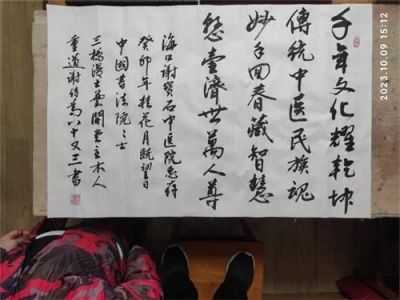 千年文化耀乾坤
傳統中医民族魂
妙手回春藏智慧
壺濟世萬人尊
海口謝寶石中医院惠存
癸卯年桂花月既望日
中國書法院之士
三橋
重道謝八十又三書
2023.10.09 15:12